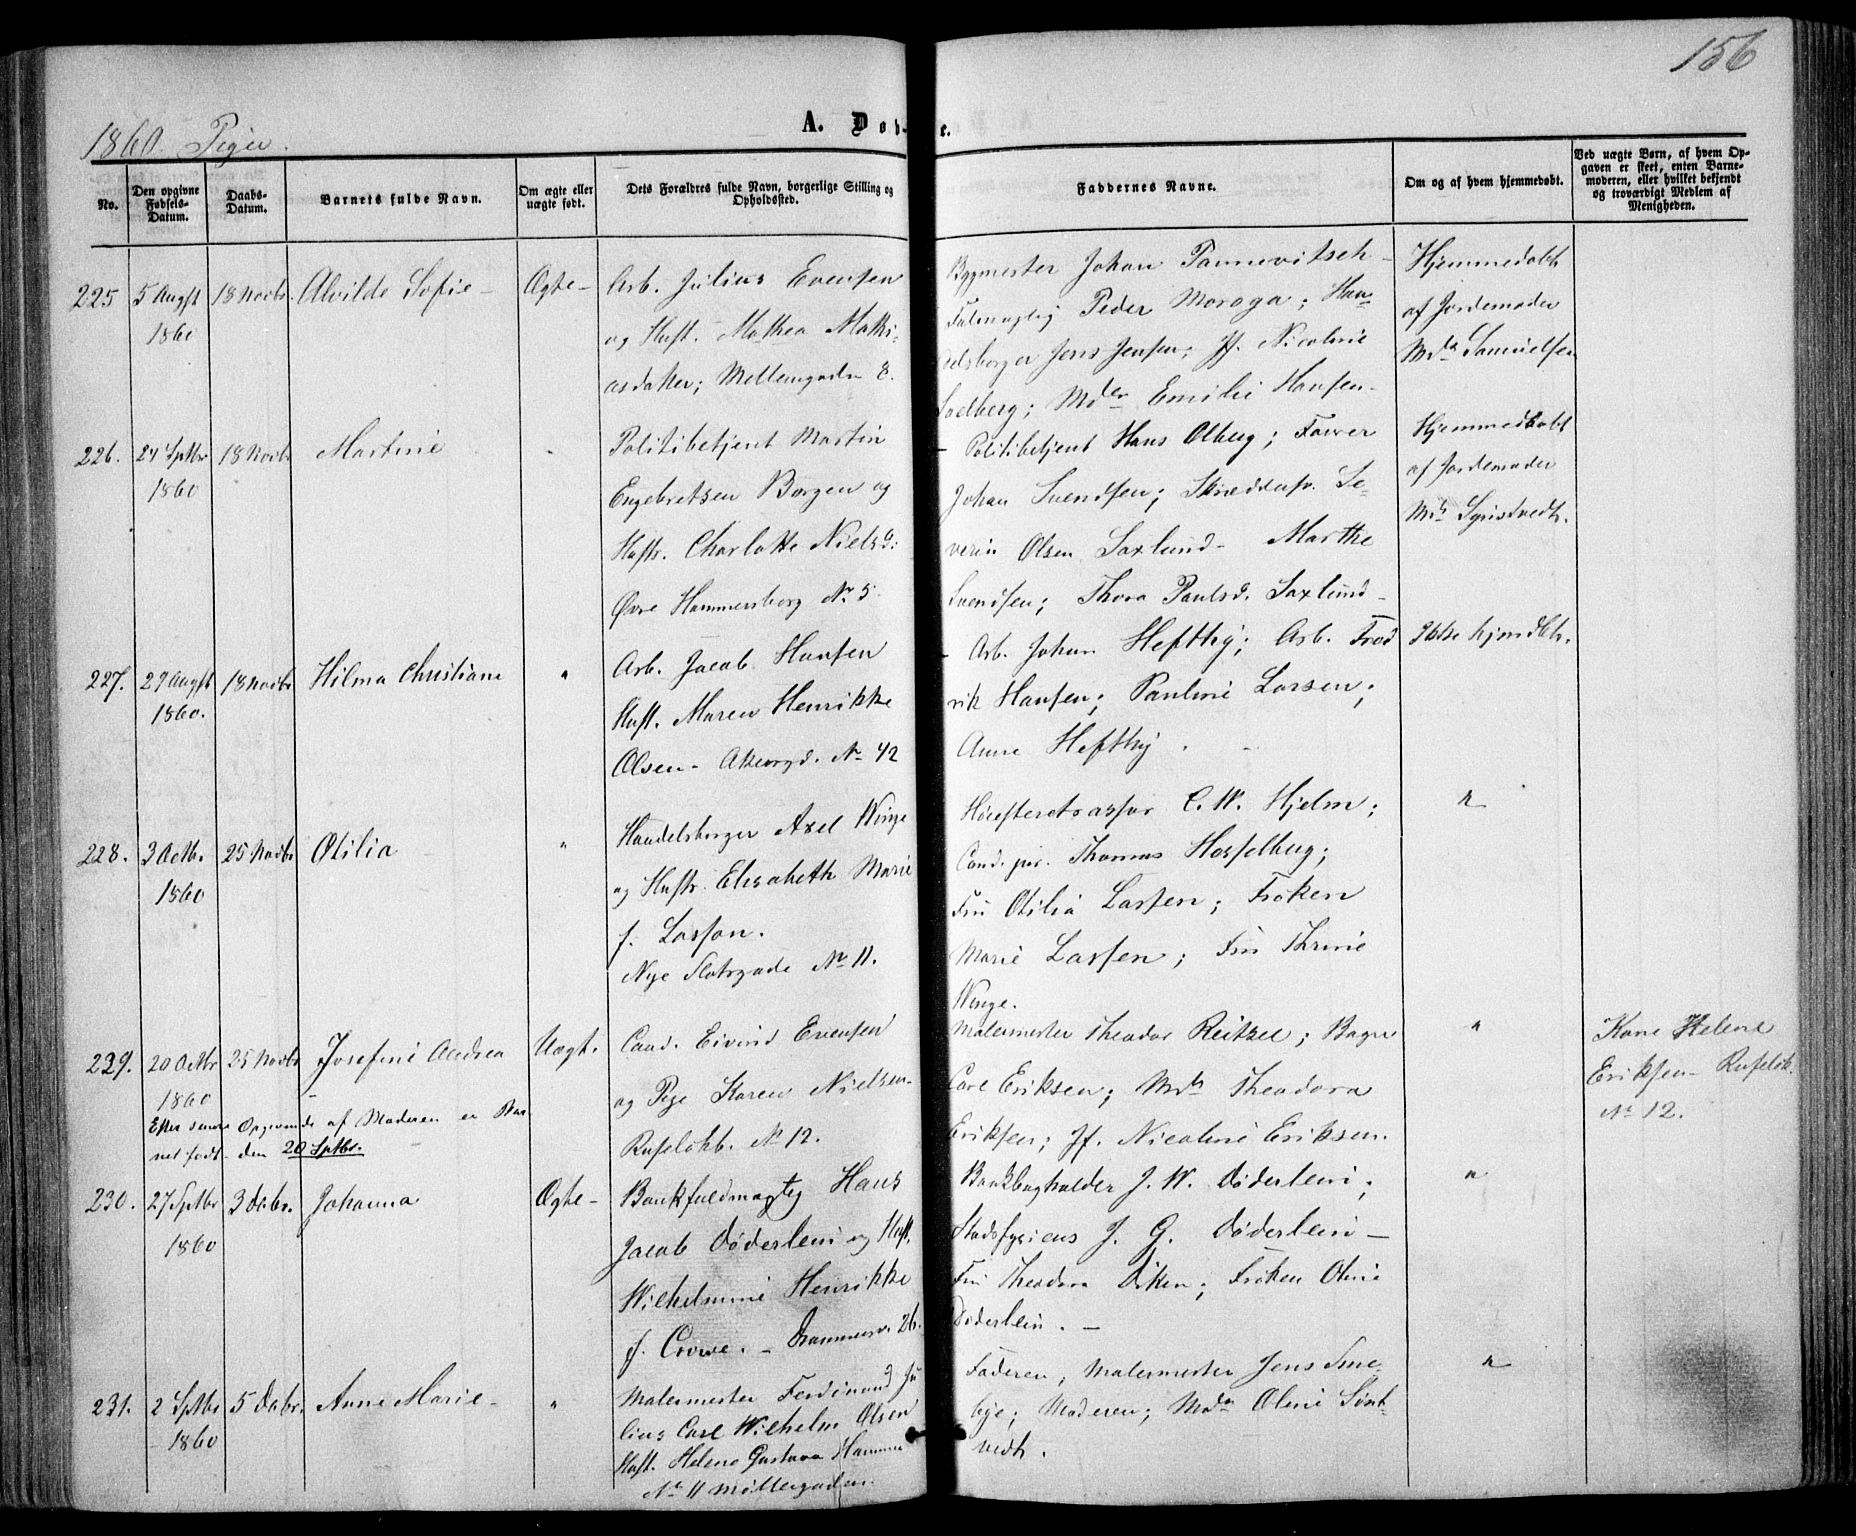 156
1860. Piger.
A. Døb-
e.
No.
Den opgivne Fødsels-Datum.
Daabs-Datum.
Barnets fulde Navn.
Om ægte eller uægte født.
Dets Forældres fulde Navn, borgerlige Stilling og Opholdssted.
Faddernes Navne.
Om og af hvem hjemmedøbt.
Ved uægte Børn, af hvem Opgaven er skeet, enten Barnemoderen, eller hvilket bekjendt og troværdigt Medlem af Menigheden.
225 5 Augst 1860 18 Novbr. Alvilde Sofie - Ægte -
Arb. Julius Evensen
og Hust. Mathea Mathi-
asdatter; Mellemgaden 8.
Bygmester Johan Pannevitsch -
Fulmægtig Peder Moraga; Han-
delsborger Jens Jensen; Jf. Nicoline
Sodberg; Mdm Emilie Hansen -
Hjemmedøbt
af Jordemoder
Mda Samuelsen
226. 24 Sptbr 1860 18 Novbr Martine
Politibetjent Martin
Engebretsen Borgen og
Hustr. Charlotte Nielsd:
Øvre Hammersborg No 5.
- Politibetjent Hans Olberg; Farver
Johan Svendsen; Skræddersv. Se-
verin Olsen Saxlund - Marthe
Svendsen; Thora Paulsd. Saxlund -
Hjemmedøbt
af Jordemoder
Md
227. 29 Augst 1860. 18 Novbr Hilma Christiane "
Arb. Jacob Hansen
Hust. Maren Henrikke
Olsen - Akersgd. No 42
- Arb. Johan Hefthy; Arb. Fred
rik Hansen; Pauline Larsen;
Anne Hefthy.
Ikke hjmdbt.
228. 3 Octbr 1860 25 Novbr Otilia "
Handelsborger Axel Winge
og Hustr. Elisabeth Marie
f. Lasson.
Nye Slotsgade No 11.
Høiesteretsassor C. W. Hjelm;
Cand. jur. Thomas Hesselberg;
Fru Otilia Lassen; Frøken
Marie Lassen; Fru Thrine
Winge.
"
229. 20 Octbr 1860 25 Novbr Josefine Andrea Uægt.
Efter senere Opgivende af Moderen er Bar-
net født den 20 Sptbr.
Cand. Eivind Evensen
og Pige Karen Nielsen -
Ruseløkb. No 12.
Malermester Theodor Reitzel; Bager
Carl Eriksen; Mda Theodora
Eriksen; Jf. Nicoline Eriksen.
"
Kone Helene
Eriksen - Ruseløk.
No 12.
230. 27 Sptbr 1860 3 Decbr. Johanna Ægte -
Bankfuldmægtig Hans
Jacob Døderlein og Hust.
Wilhelmine Henrikke
f. Crowe. - Drammensv. 26.
Bankbogholder J. W. Døderlein;
Stadsfysicus J. G. Døderlein -
Fru Theodora Diken; Frøken Oline
Døderlein. -
"
231. 2 Sptbr 1860 5 Decbr. Anne Marie - "
Malermester Ferdinand Ju
lius Carl Wilhelm Olsen
Hust. Helene Gustava Hammer
No 11 Møllergaden.
Faderen, Malermester Jens Sme-
bye; Moderen; Mda Oline Sønst-
vedt.
"